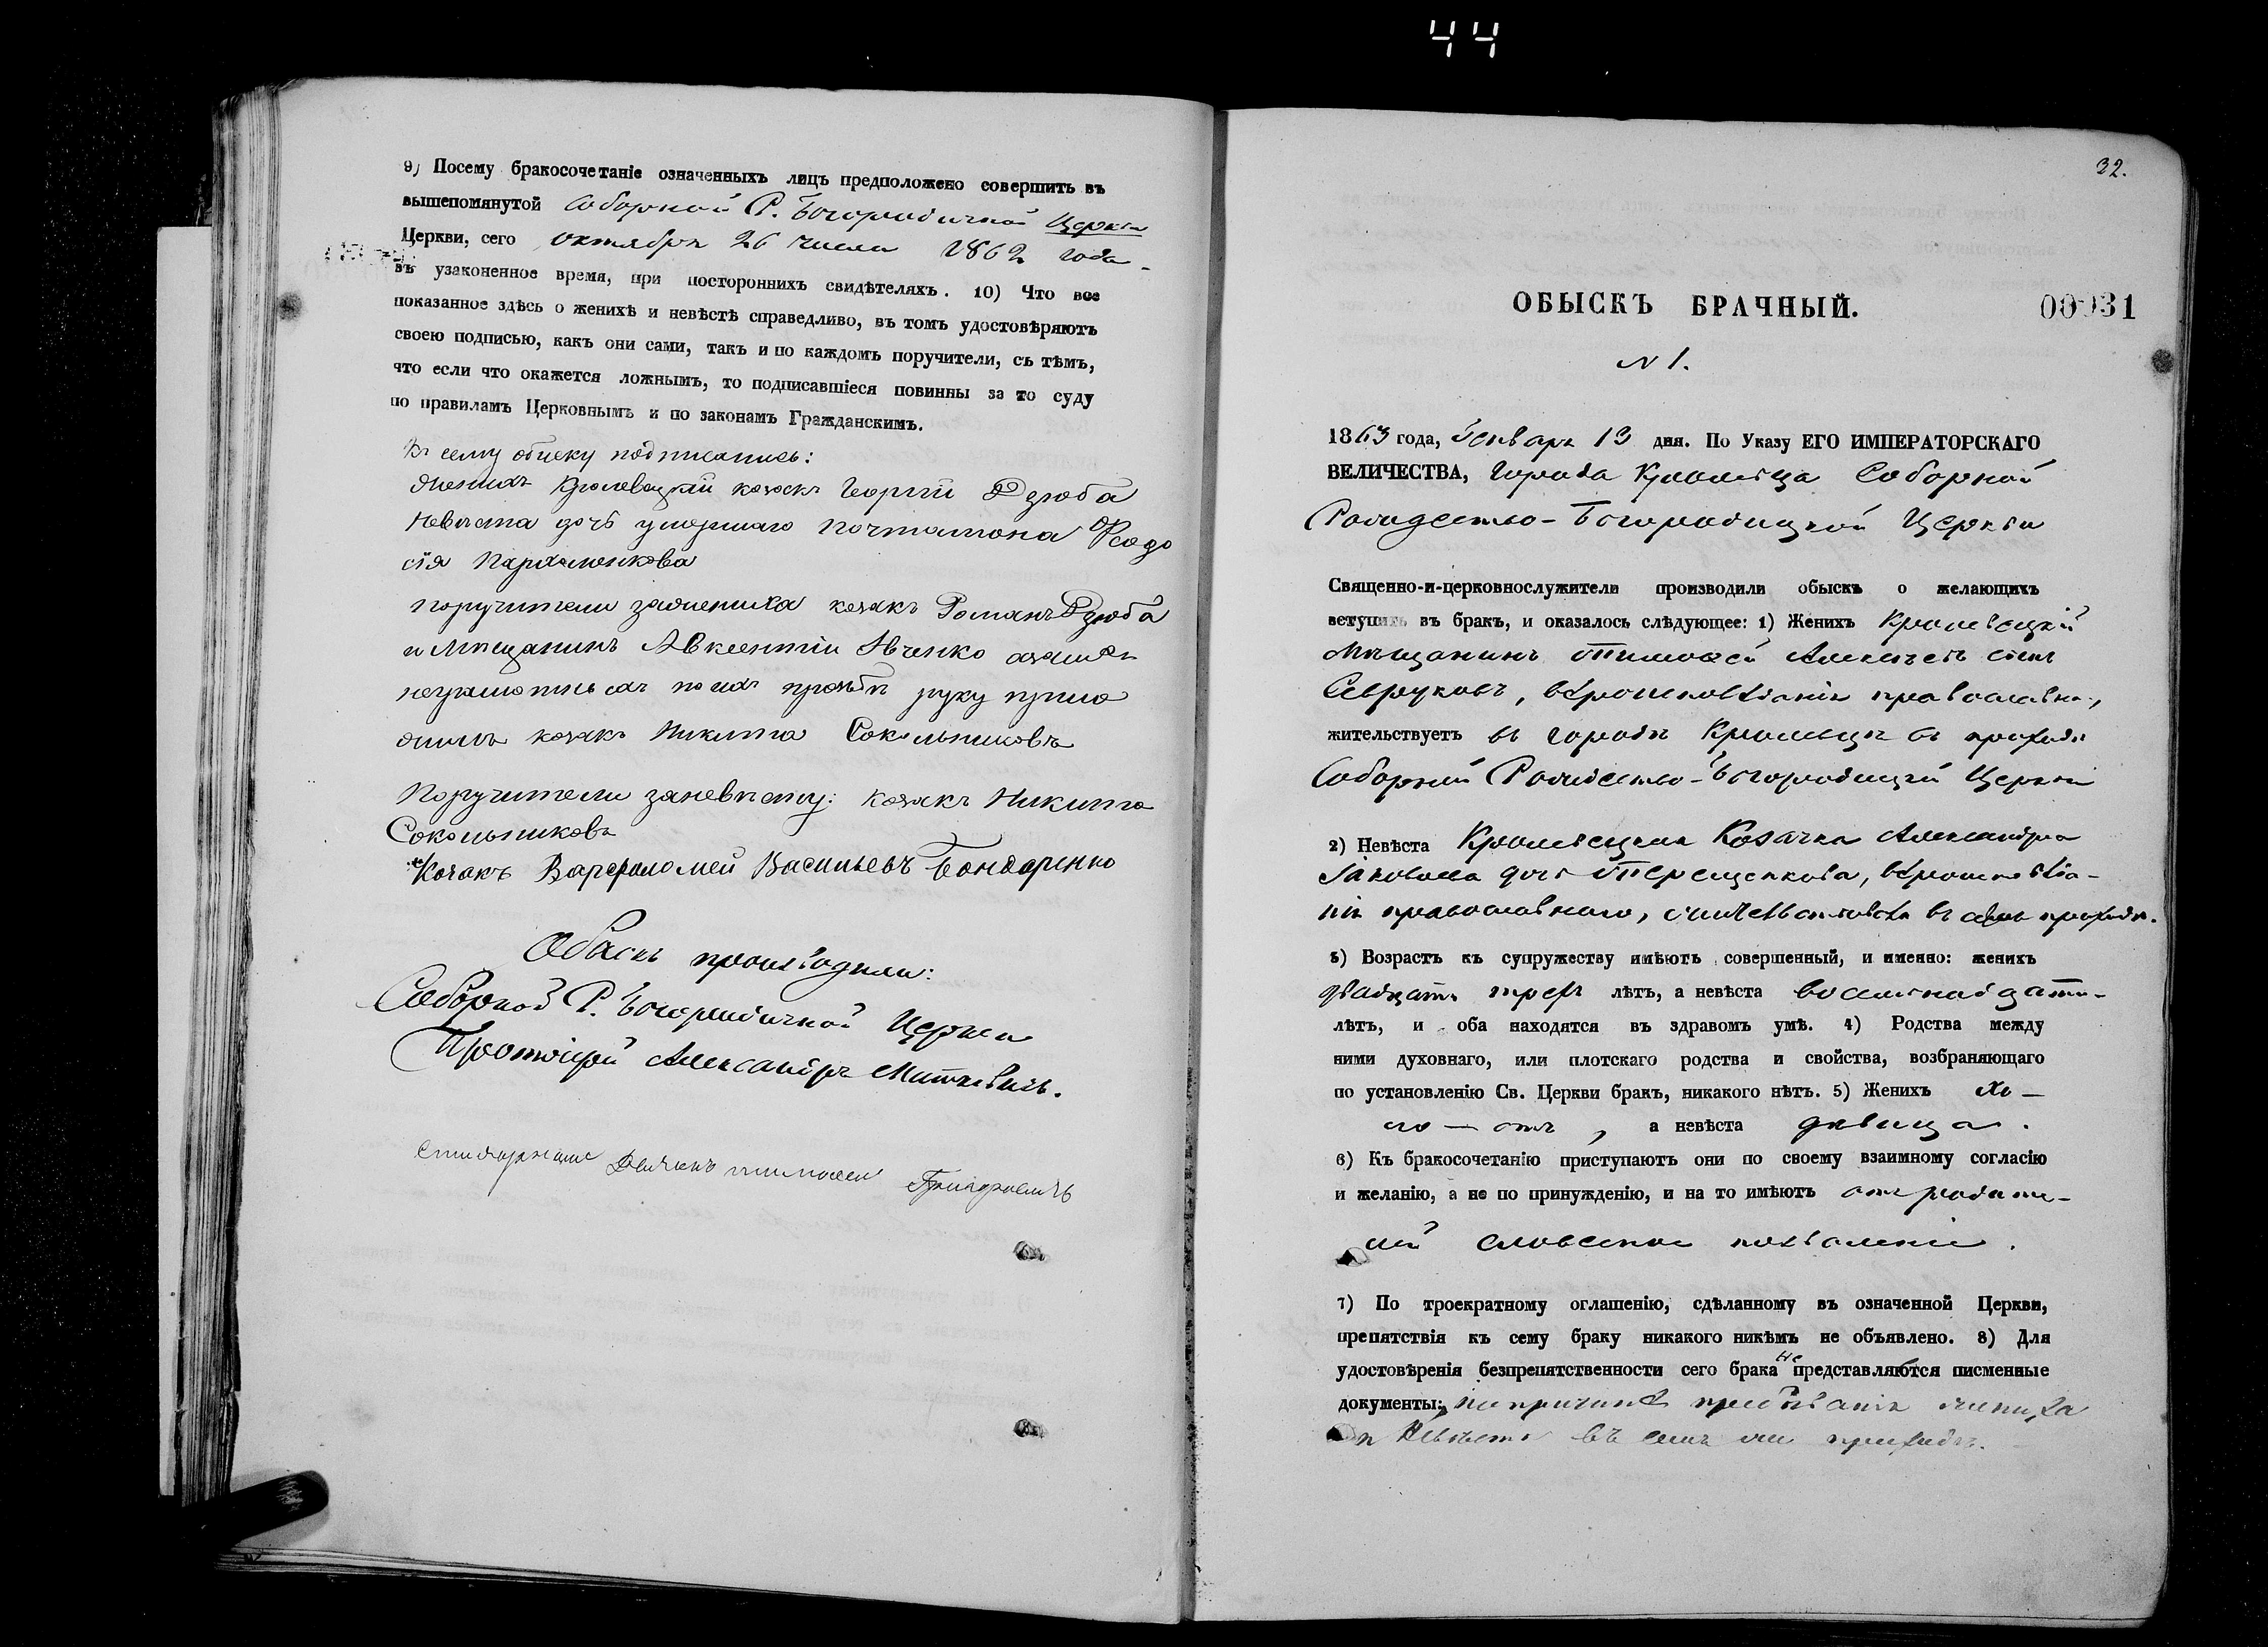 44
9) Посему бракосочетаніе означенныхъ лицъ предположено совершить въ
вышепомянутой Соборной Р. Богородичной Церкви
Церкви, сего октября 26 числа 1862 года
въ узаконенное время, при постороннихъ свидѣтеляхъ. 10) Что все
показанное здѣсь о женихѣ и невѣстѣ справедливо, въ томъ удостовѣряютъ
своею подписью, какъ они сами, такъ и по каждомъ поручители, съ тѣмъ,
что если что окажется ложнымъ, то подписавшіеся повинны за то суду
по правиламъ Церковнымъ и по законамъ Гражданскимъ.
Къ сему обыску подписались:
Женихъ Кролевецкій козакъ Георгій Дзюба
Невѣста дочь умершаго почталіона Феодо
сія Пархоменкова
Поручители зажениха козакъ Романъ Дзюба
и Мѣщанинъ Авксентій Ивченко
неграмотныхъ по ихъ прозьбѣ руку прило
жилъ козакъ Никита Сокольниковъ
Поручители заневѣсту: козакъ Никита
Сокольниковъ
Козакъ Варфоломей Васильевъ Бондаренко
Обыскъ производили:
Соборной Р. Богородичной Церкви
Протоіерей Александръ Маткевичъ.
Дьячекъ Тимофей Григоровичъ
32.
ОБЫСКЪ БРАЧНЫЙ.
00031
N 1.
1863 года, Генваря 13 дня. По Указу ЕГО ИМПЕРАТОРСКАГО
ВЕЛИЧЕСТВА, города Кролевца Соборной
Рождество-Богородицкой Церкви
Священно-и-церковнослужители производили обыскъ о желающихъ
вступить въ бракъ, и оказалось слѣдующее: 1) Женихъ Кролевецкій
Мѣщанинъ Тимофей Алексѣевъ сынъ
Севруковъ, вѣроисповѣданія православна,
жительствуетъ въ городѣ Кролевцѣ въ приходѣ
Соборной Рождество-Богородицкой Церкви
2) Невѣста Кролевецкая Козачка Александра
Іаковлева дочь Терещенкова, вѣроисповѣда-
нія православнаго, въ приходѣ.
3) Возрастъ къ супружеству имѣютъ совершенный, и именно: женихъ
двадцать трехъ лѣтъ, а невѣста восемнадцати
лѣтъ, и оба находятся въ здравомъ умѣ. 4) Родства между
ними духовнаго, или плотскаго родства и свойства, возбраняющаго
по установленію Св. Церкви бракъ, никакого нѣтъ. 5) Женихъ хо —
ло — стъ, а невѣста дѣвица.
6) Къ бракосочетанію приступаютъ они по своему взаимному согласію
и желанію, а не по принужденію, и на то имѣютъ отъ родите-
лей словесное позволеніе.
7) По троекратному оглашенію, сдѣланному въ означенной Церкви,
препятствія къ сему браку никакого никѣмъ не объявлено. 8) Для
удостовѣренія безпрепятственности сего брака не представляются писменные
документы: по причинѣ пребыванія жениха
и Невѣсты въ семъ же приходѣ.